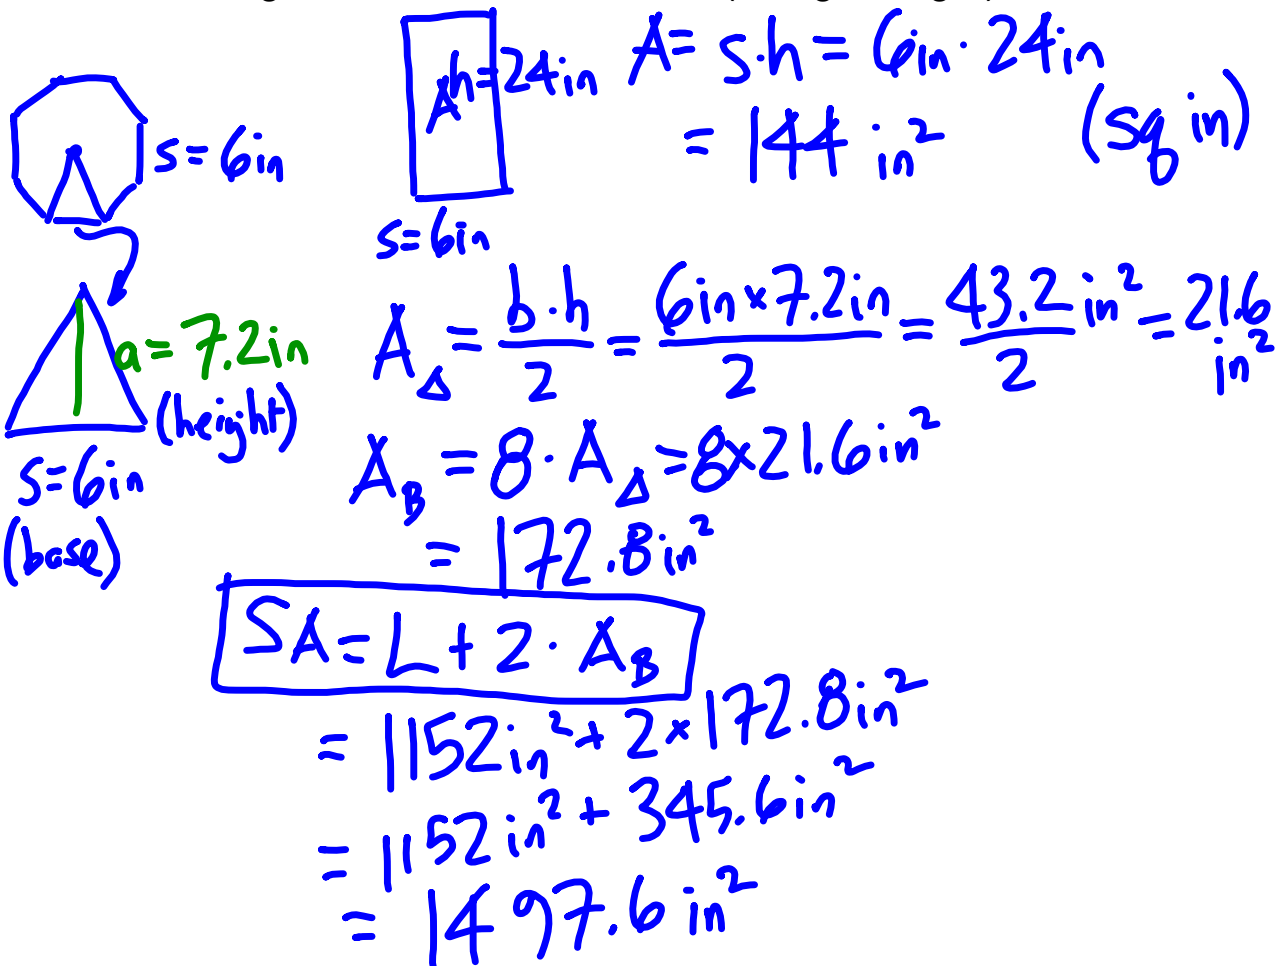 s=6in
A h=24in
s=6in
A= s·h = 6in·24in
= 144 in² (sq in)
a=7.2in
(height)
s=6in
(base)
A△ = b·h/2 = 6in×7.2in/2 = 43.2in²/2 = 21.6 in²
A_B = 8·A△ = 8×21.6in²
= 172.8in²
SA = L + 2·A_B
= 1152in² + 2×172.8in²
= 1152in² + 345.6in²
= 1497.6 in²